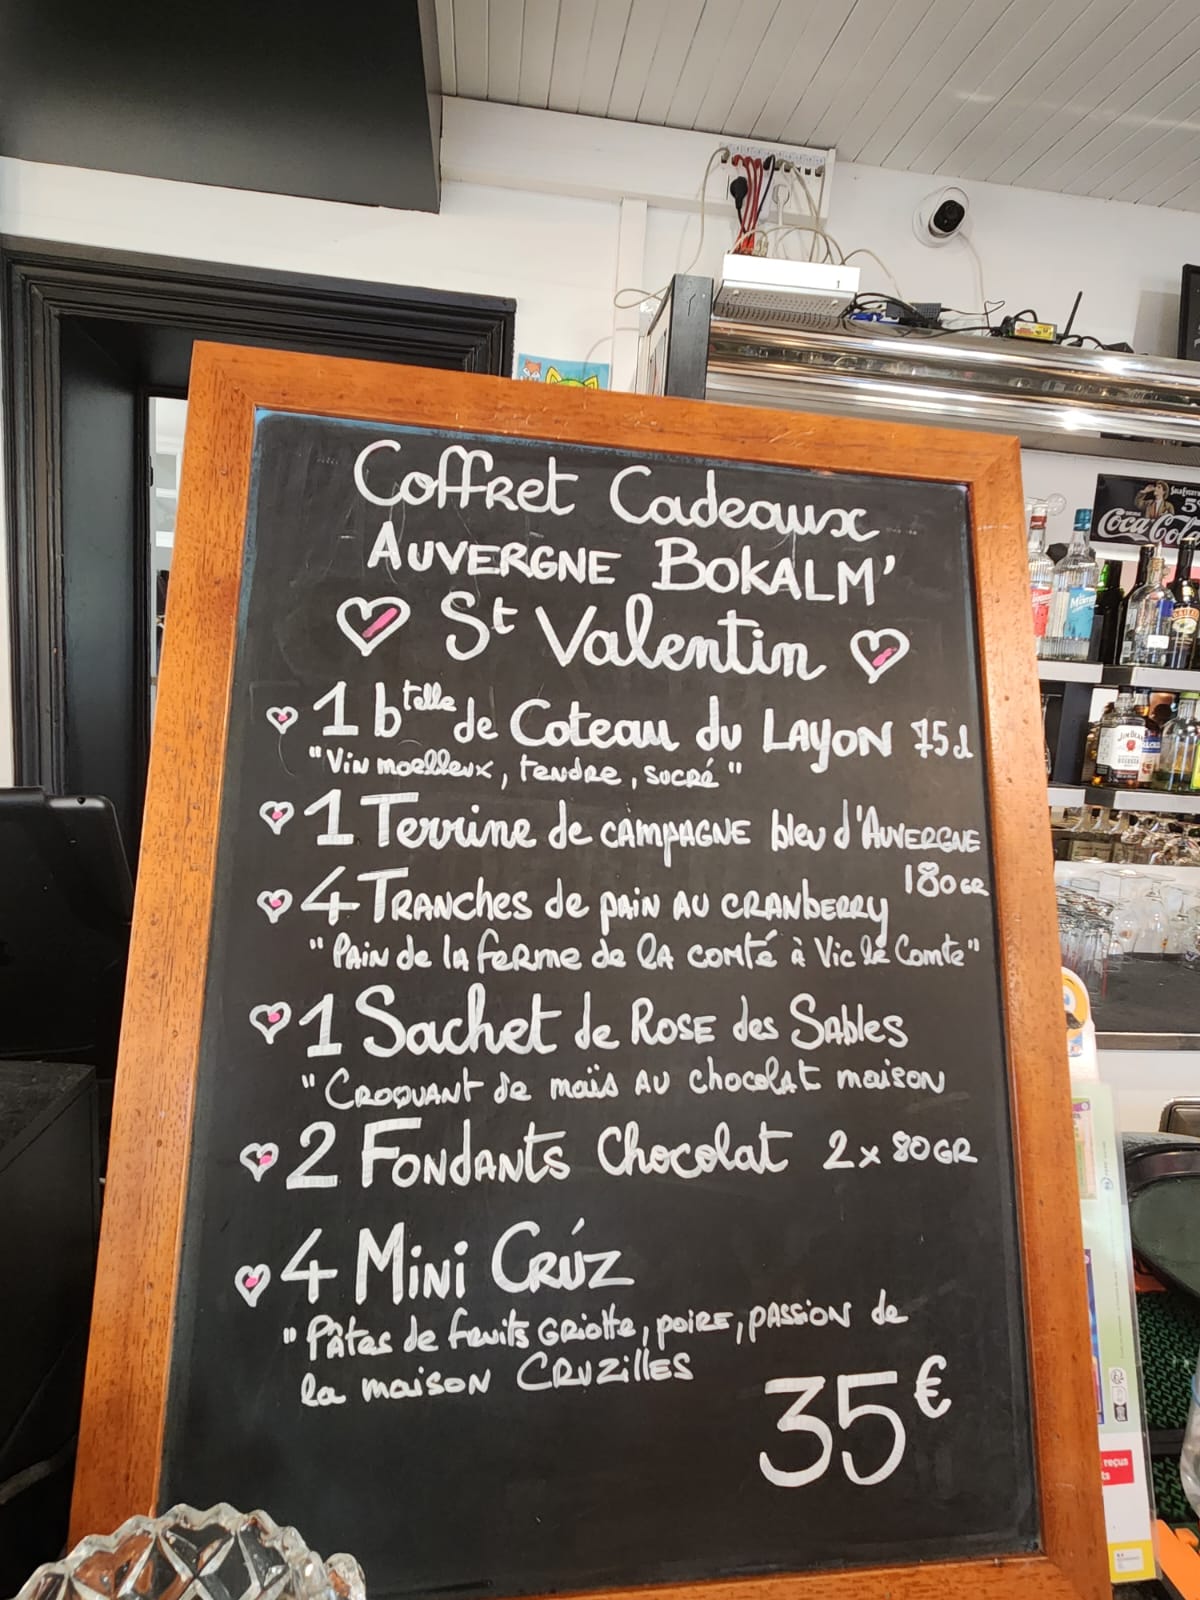 Coffret Cadeaux
AUVERGNE BOKALM'
St Valentin
1 btelle de Coteau du LAYON 75cl
"Vin moelleux, tendre, sucré"
1 Terrine de CAMPAGNE bleu d'AUVERGNE
180GR
4 TRANches de pAiN AU CRANbERRy
"PAiN de lA feRme de lA comté à Vic le Comte"
1 Sachet de ROSE des SAbles
"CROQUANT de maïs AU chocolAt maison
2 FONdANTs Chocolat 2 x 80GR
4 MiNi CRÚZ
"Pâtes de fruits GRiotte, poiRE, pASSiON de
la maisoN CRUZiLLES
35€
Coca-Cola
JIM BEAM
reçus